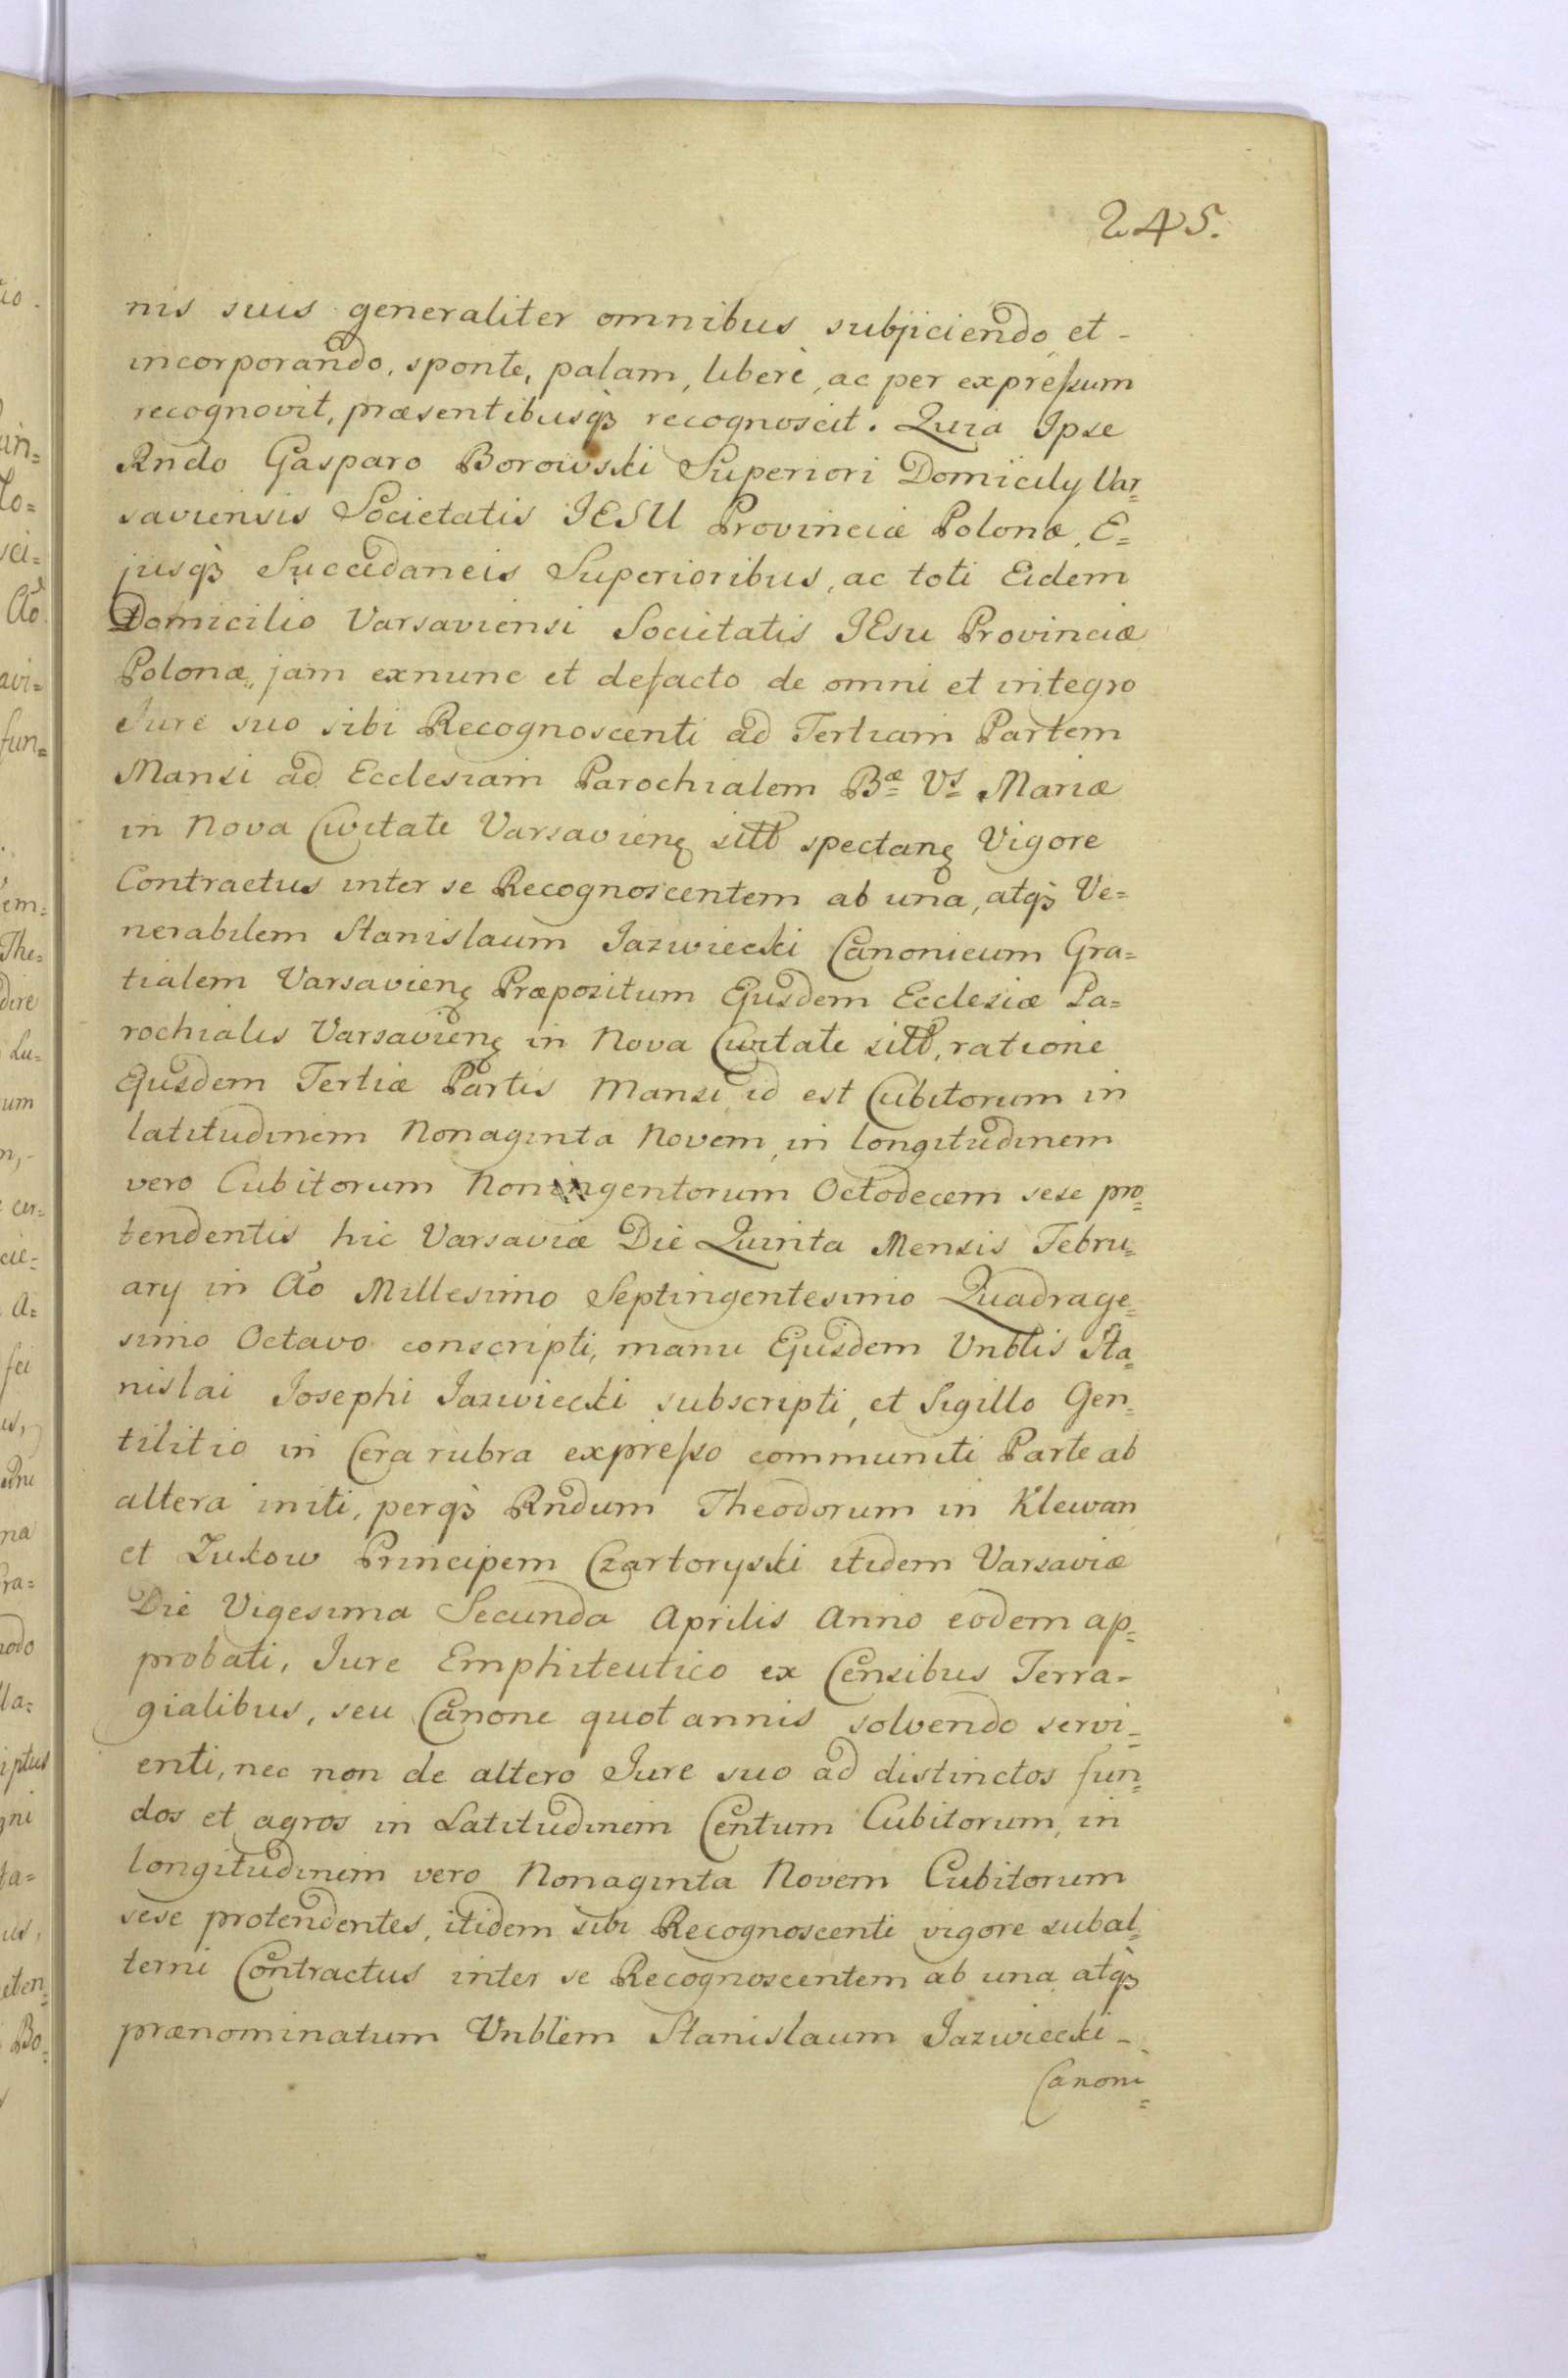 245.
nis suis generaliter omnibus subjiciendo et -
incorporando, sponte, palam, liberè, ac per expreſsum
recognovit, præsentibusqꝫ recognoscit. Quia Ipse
Rndo Gasparo Borowski Superiori Domicily Var=
saviensis Societatis JESU Provinciæ Polonæ, E=
jusqꝫ Succedaneis Superioribus, ac toti Eidem
Domicilio Varsaviensi Societatis JEsu Provinciæ
Polonæ, jam exnunc et defacto de omni et integro
Jure suo sibi Recognoscenti ad Tertiam Partem
Mansi ad Ecclesiam Parochialem Bæ Vs Mariæ
in Nova Civitate Varsavienꝫ sitt spectanꝫ Vigore
Contractus inter se Recognoscentem ab una, atqꝫ Ve=
nerabilem Stanislaum Jazwiecki Canonicum Gra=
tialem Varsavienꝫ Præpositum Ejusdem Ecclesiæ Pa=
rochialis Varsavienꝫ in Nova Civitate sitt, ratione
Ejusdem Tertiæ Partis Mansi id est Cubitorum in
latitudinem Nonaginta Novem, in longitudinem
vero Cubitorum Noningentorum Octodecem sese pro=
tendentis hic Varsaviæ Die Quinta Mensis Febru=
ary in Ao Millesimo Septingentesimo Quadrage=
simo Octavo conscripti, manu Ejusdem Vnblis Sta=
nislai Josephi Jazwiecki subscripti, et Sigillo Gen=
tilitio in Cera rubra expreſso communiti Parte ab
altera initi, perqꝫ Rndum Theodorum in Klewan
et Zukow Principem Czartoryski itidem Varsaviæ
Die Vigesima Secunda Aprilis Anno eodem ap=
probati, Jure Emphiteutico ex Censibus Terra-
gialibus, seu Canone quot annis solvendo servi=
enti, nec non de altero Jure suo ad distinctos fun=
dos et agros in Latitudinem Centum Cubitorum, in
longitudinem vero Nonaginta Novem Cubitorum
sese protendentes, itidem sibi Recognoscenti vigore subal=
terni Contractus inter se Recognoscentem ab una atqꝫ
prænominatum Vnblem Stanislaum Jazwiecki -
Canoni=